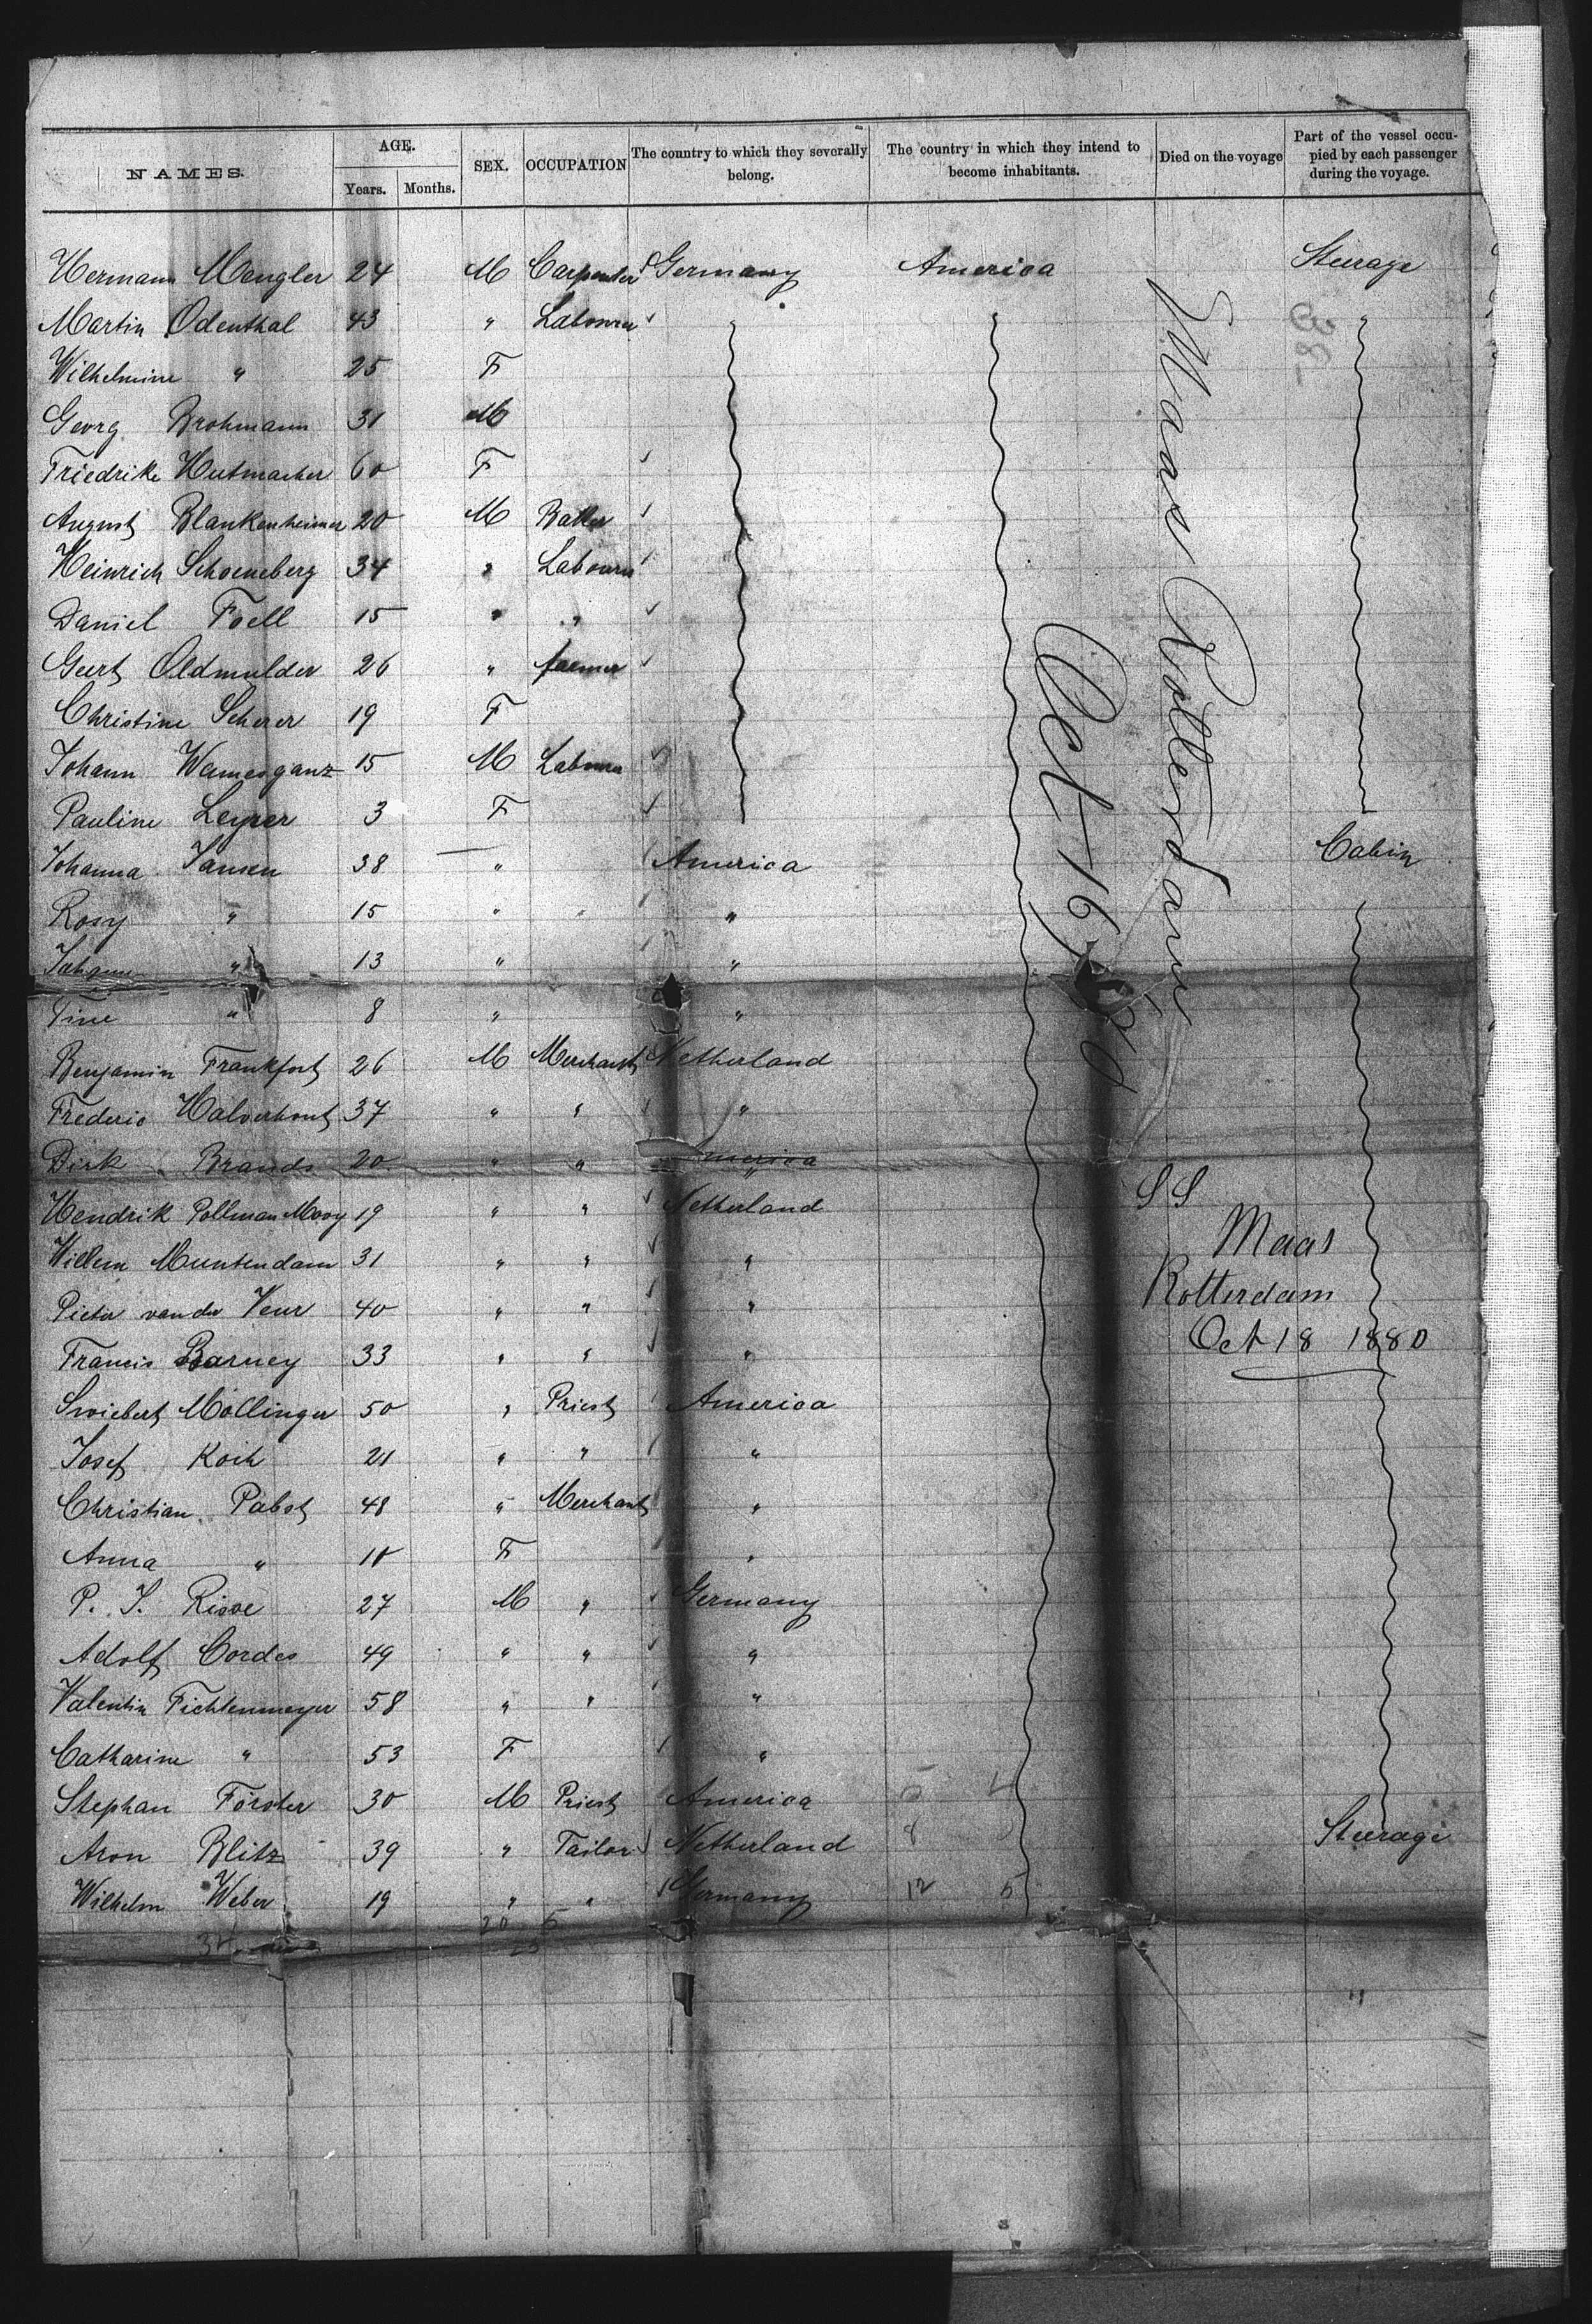 NAMES. AGE. Years. Months. SEX. OCCUPATION The country to which they severally belong. The country in which they intend to become inhabitants. Died on the voyage Part of the vessel occupied by each passenger during the voyage.
Hermann Mengler 24 M Carpenter Germany America Steerage
Martin Odenthal 43 " Labourer " " "
Wilhelmine " 25 F
Georg Brohmann 31 M
Friedrike Hutmacher 60 F
August Blankenheimer 20 M Baker
Heinrich Schoeneberg 34 " Labourer
Daniel Foell 15 " "
Geert Oldmulder 26 " farmer
Christine Scherer 19 F
Johann Wamesganz 15 M Labourer
Pauline Leyrer 3 F
Johanna Jansen 38 " America Cabin
Rosy " 15 " "
Johann " 13 " "
Tine " 8 " "
Benjamin Frankfort 26 M Merchant Netherland
Frederic Halverhout 37 " " "
Dirk Brands 20 " " America
Hendrik Pollman Mooy 19 " " Netherland
Willem Muntendam 31 " " "
Pieter van der Veur 40 " " "
Francis Barney 33 " " "
Swiebert Mollinger 50 " Priest America
Josef Koch 21 " " "
Christian Pabst 48 " Merchant "
Anna " 10 F "
P. J. Risse 27 M " Germany
Adolf Cordes 49 " " "
Valentin Fichtenmeyer 58 " " "
Catharine " 53 F "
Stephan Förster 30 M Priest America
Aron Blitz 39 " Tailor Netherland 8 Steerage
Wilhelm Weber 19 " " Germany 12 5
34 20 5
Maas Rotterdam
Oct 16, 80
SS
Maas
Rotterdam
Oct 18 1880